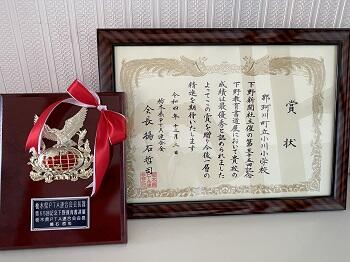 賞状
那珂川町立小川小学校
下野新聞社主催の第五十五回記念
下野教育書道展において貴校の
成績は最も優秀と認められました
よってこの賞を贈り今後一層の
精進を期待いたします
令和四年十二月三日
栃木県PTA連合会
会長
栃木県PTA連合会会長賞
第55回記念下野教育書道展
栃木県PTA連合会会長